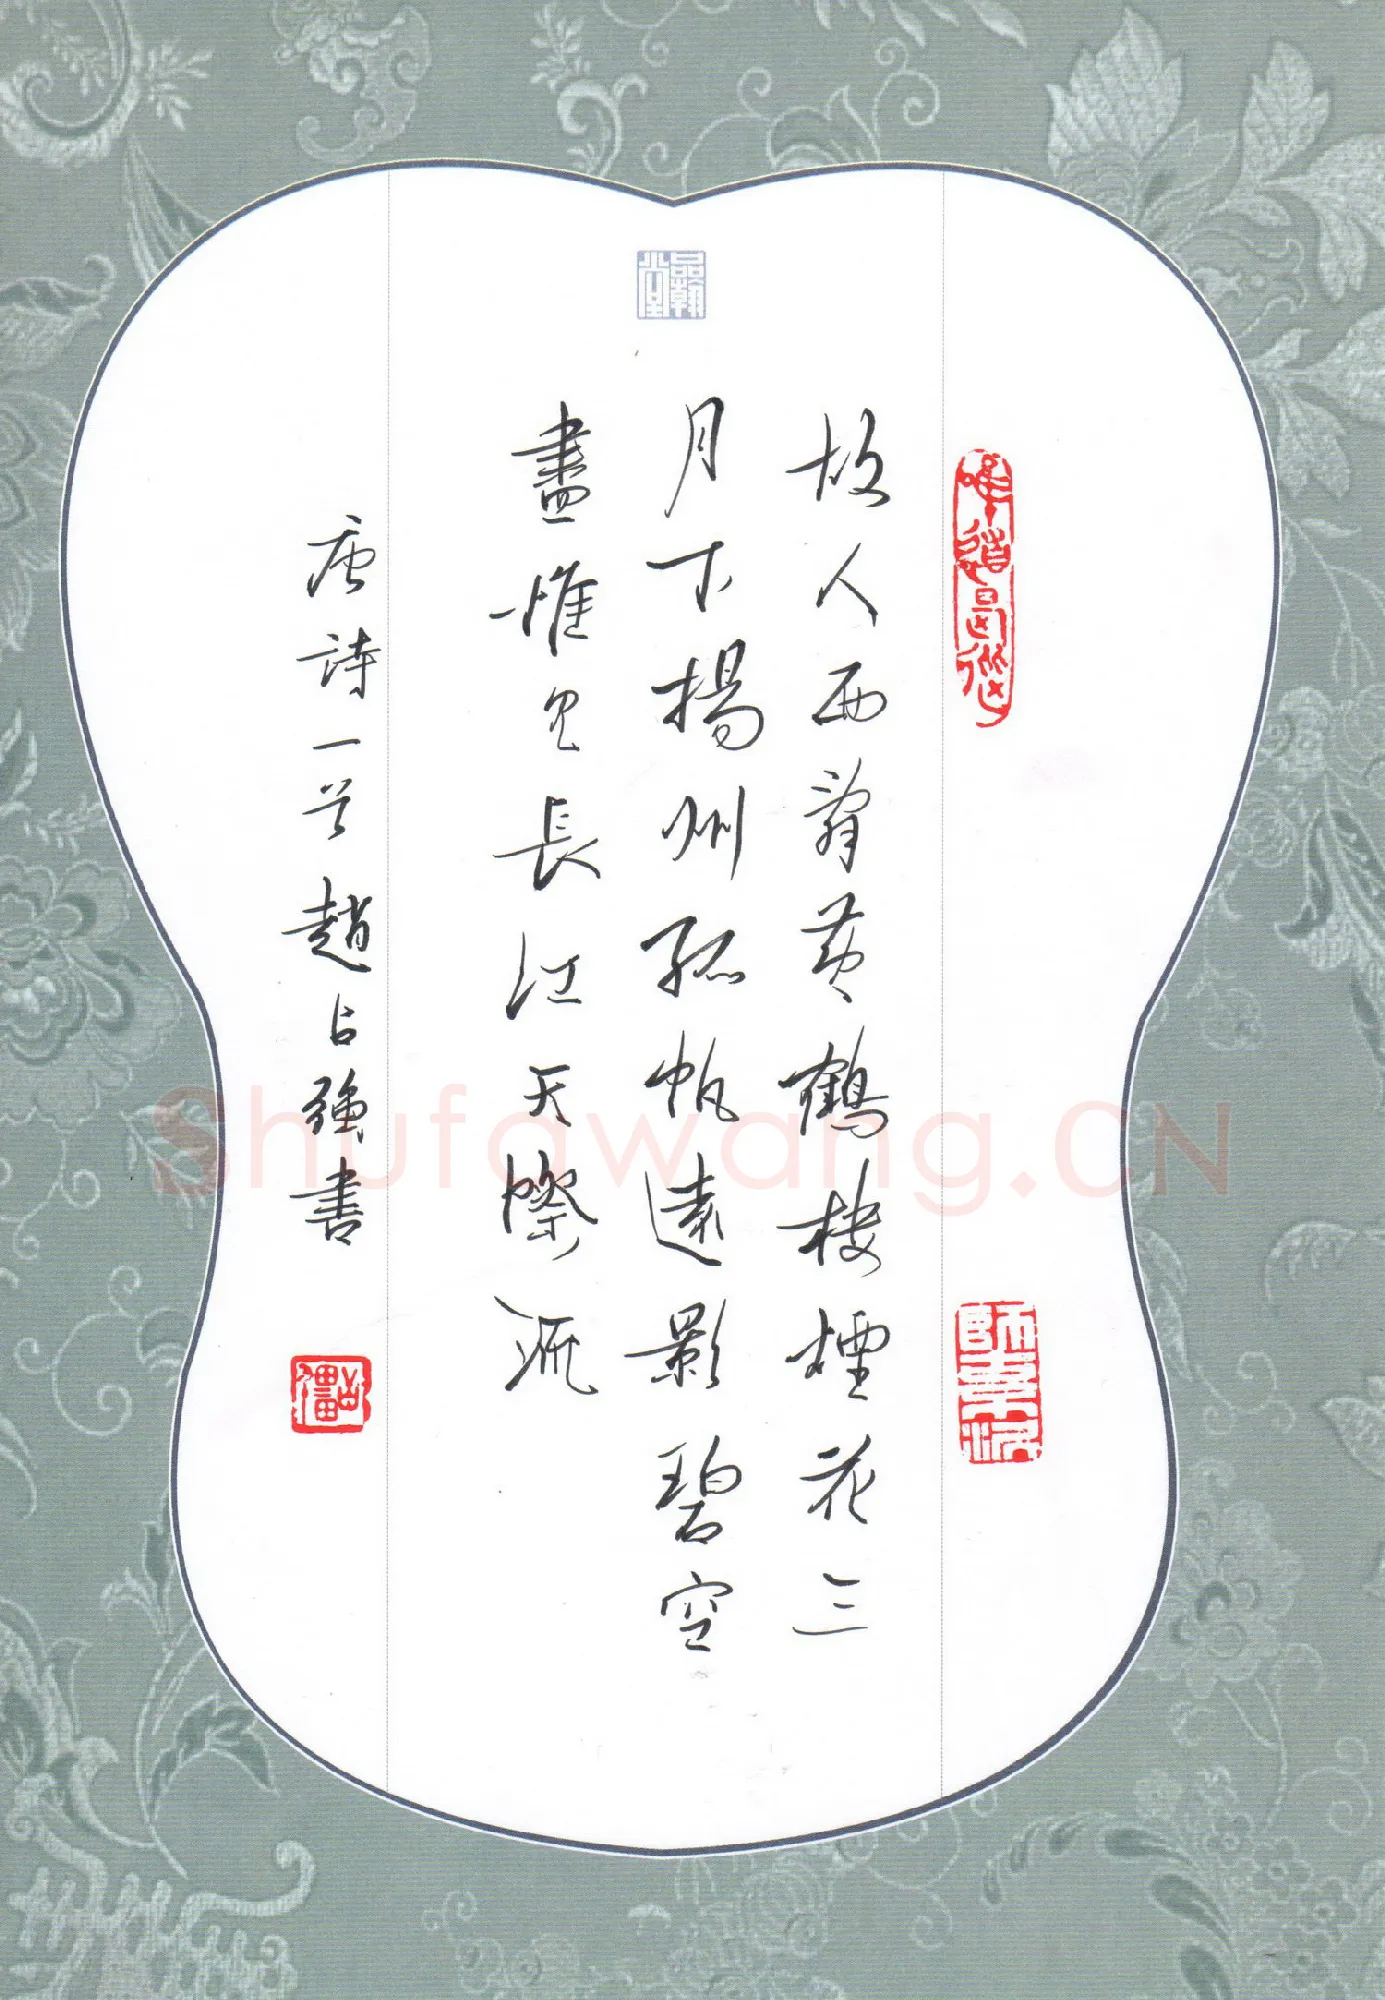 品翰堂
故人西辭黄鶴樓煙花三
月下揚州孤帆遠影碧空
盡惟見長江天際流
唐詩一首趙占強書
Shufawang.CN